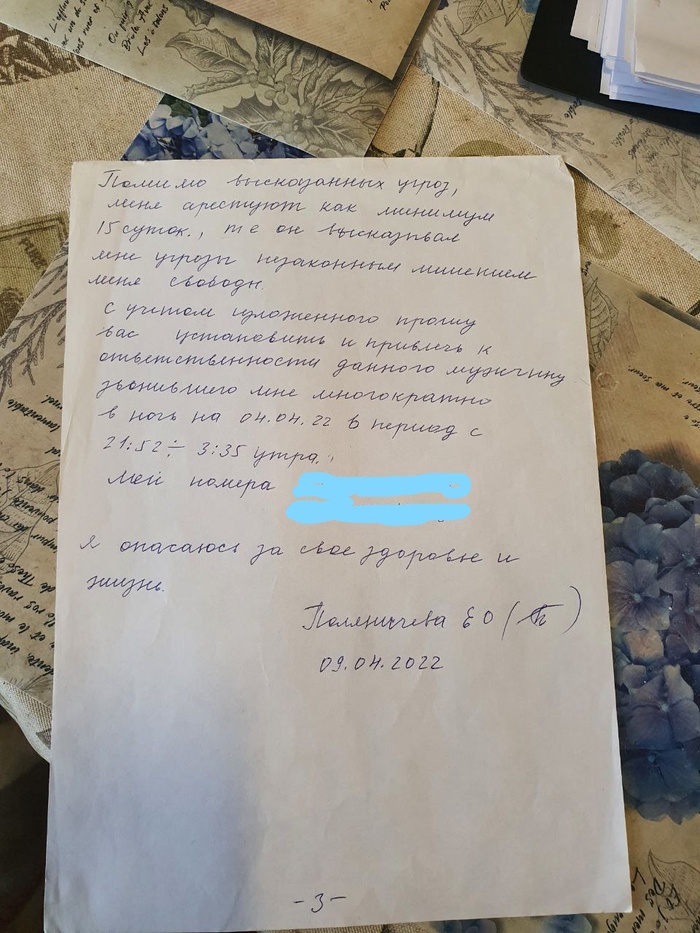 Помимо высказанных угроз,
меня арестуют как минимум
15 суток., те он высказывал
мне угрозы незаконным лишением
меня свободы.
С учетом изложенного прошу
вас установить и привлечь к
ответственности данного мужчину
звонившего мне многократно
в ночь на 04.04.22 в период с
21:52 ÷ 3:35 утра.
Мои номера
Я опасаюсь за свое здоровье и
жизнь.
Поляничева ЕО (
09.04.2022
-3-